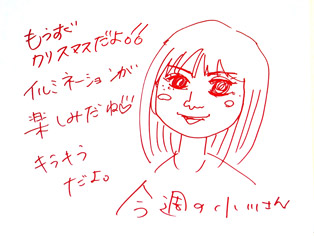 もうすぐ
クリスマスだよ♡♡
イルミネーションが
楽しみだね♡
キラキラ
だよ。
今週の小川さん